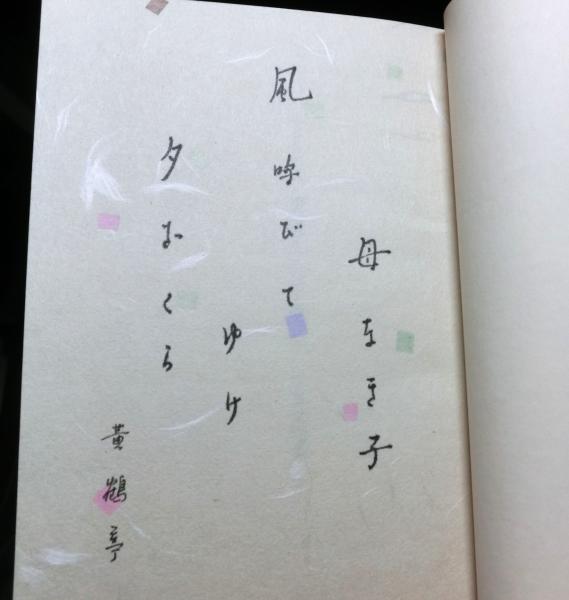 母なき子
風呼びて
ゆけ
夕ざくら
黄鶴亭